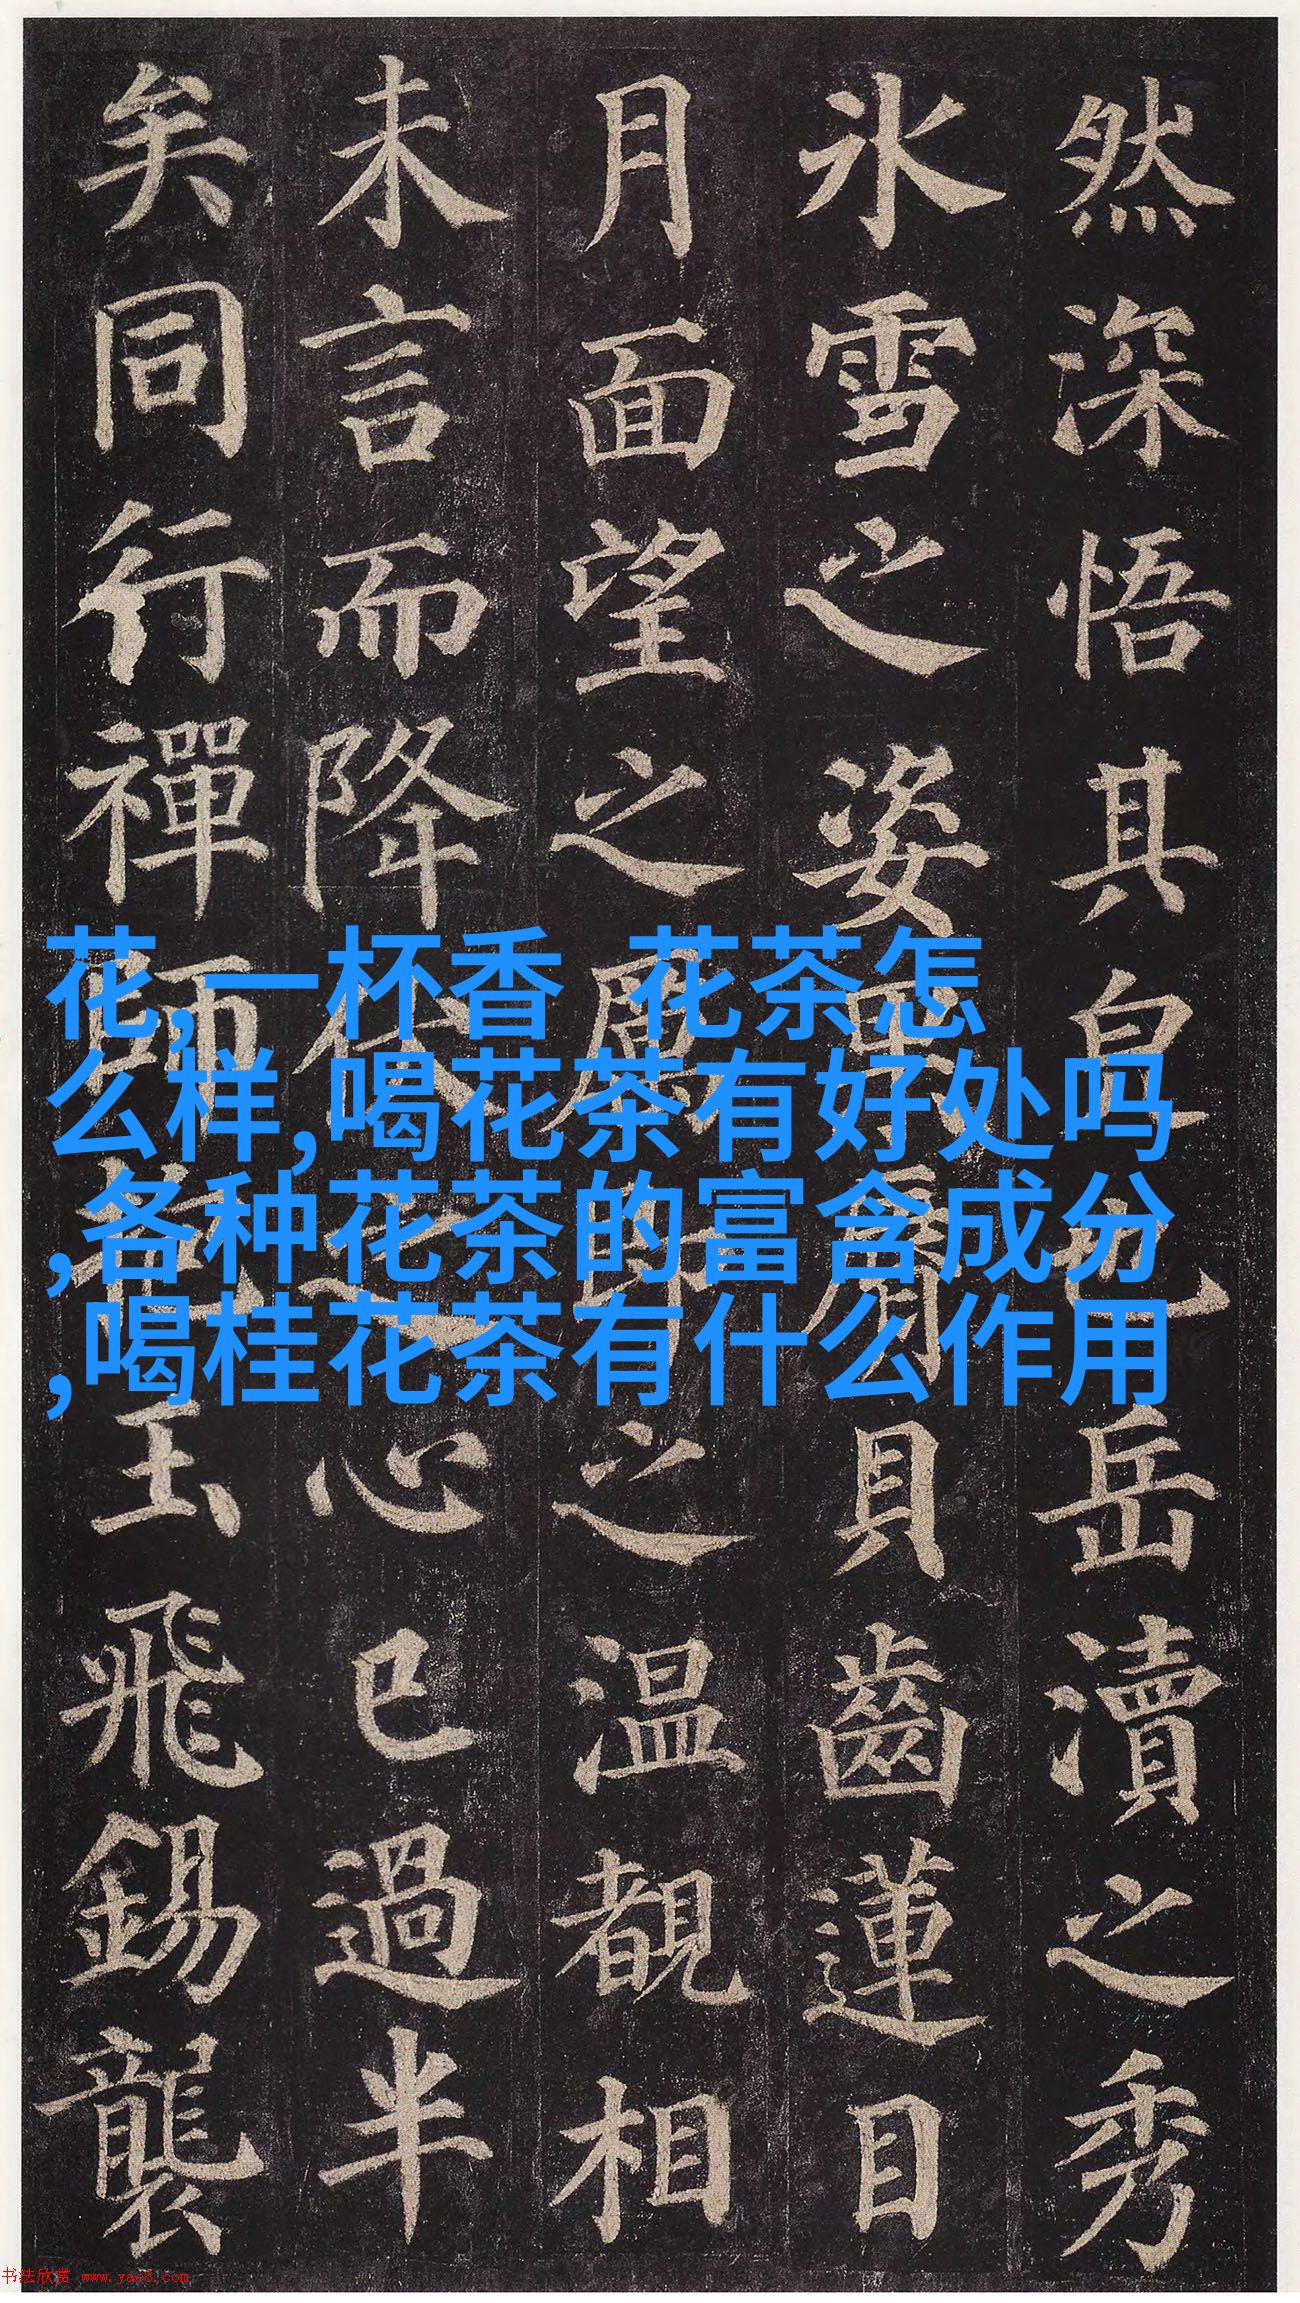 然深悟其皃也岳瀆之秀
氷雪之姿果脣貝齒蓮目
月面望之厲即之温覩相
未言而降伏之心已過半
矣同行禪師抱玉飛錫襲
花,一杯香 花茶怎
么样,喝花茶有好处吗
,各种花茶的富含成分
,喝桂花茶有什么作用
书法欣赏 www.yac8.com